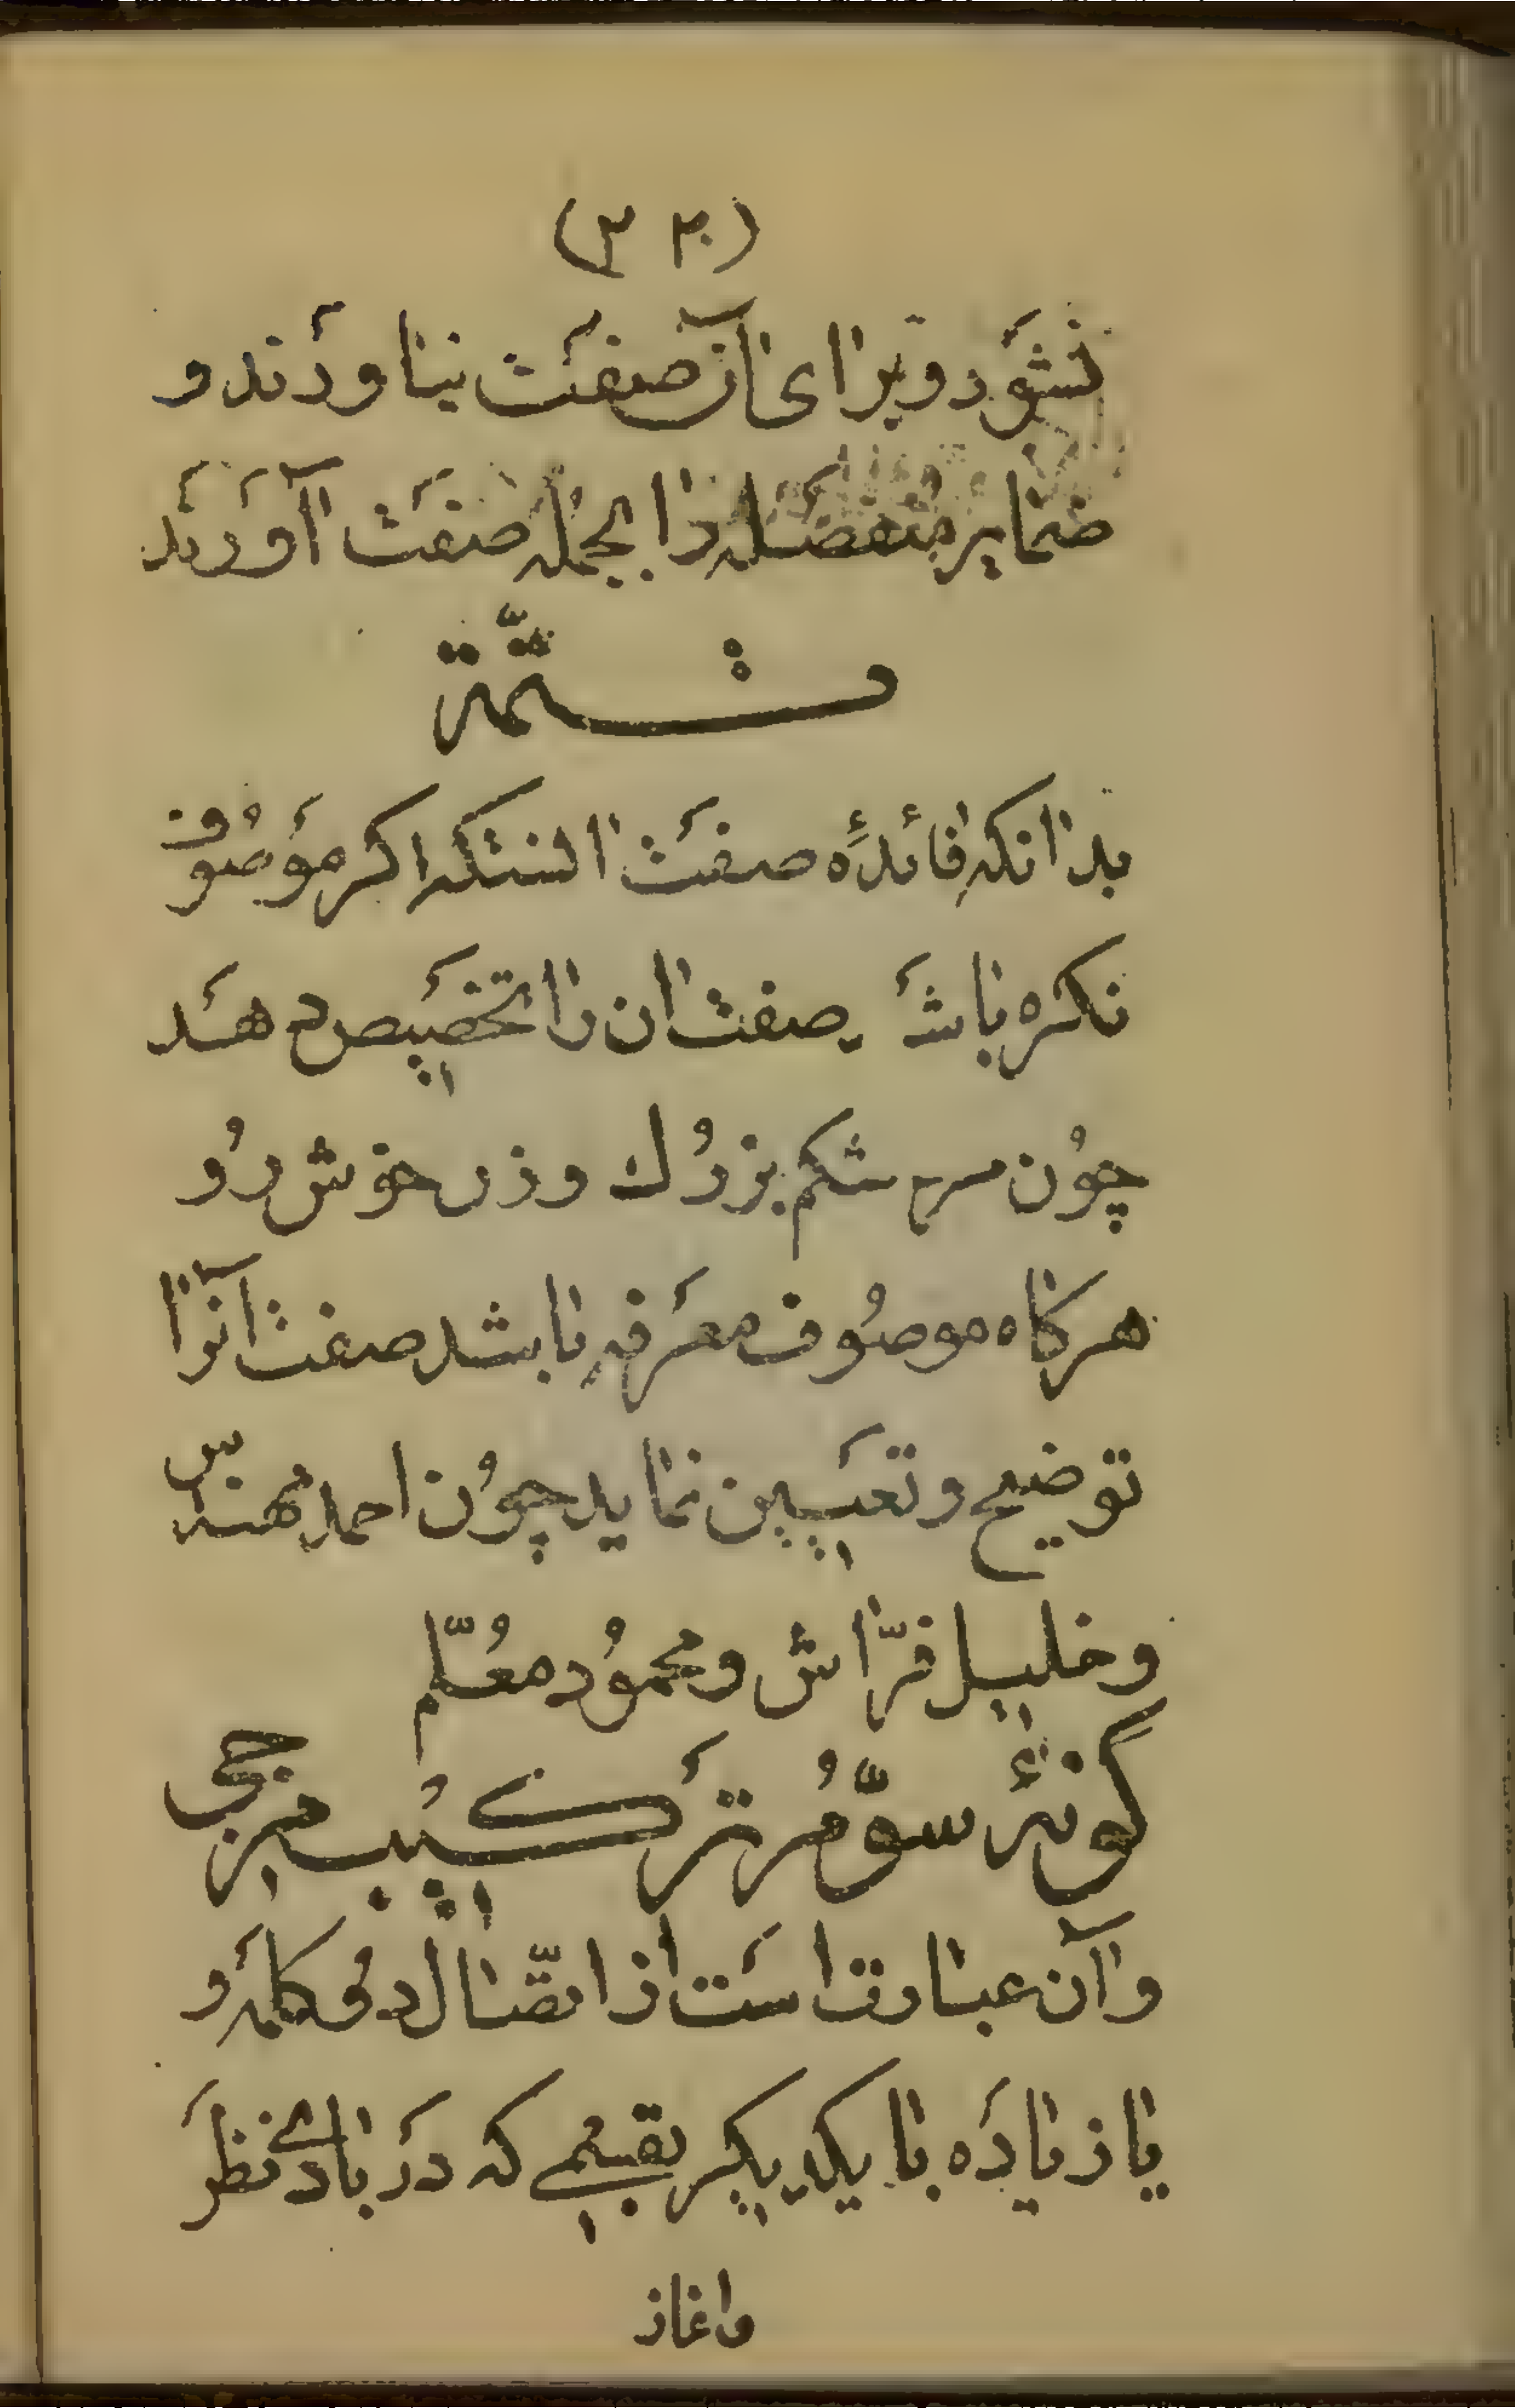 (۳۲)
نشود و برای آن صفت نیاورند و
ضمایر منفصله را بجمله صفت آورند
تتمّة
بدانکه فائدهٔ صفت انستکه اکر موصوف
نکره باشد صفت ان را تخصیص دهد
چون مرد شکم بزرك و زن خوش رو
هرکاه موصوف معرفه باشد صفت آنرا
توضیح و تعیین نماید چون احمد مهندس
و خلیل فرّاش و محمود معلّم
گونهٔ سوّم ترکیب مزجی
و آن عبارت است از اتّصال دو کلمه و
یا زیاده با یکدیکر بقسمی که در بادی نظر
واغاز